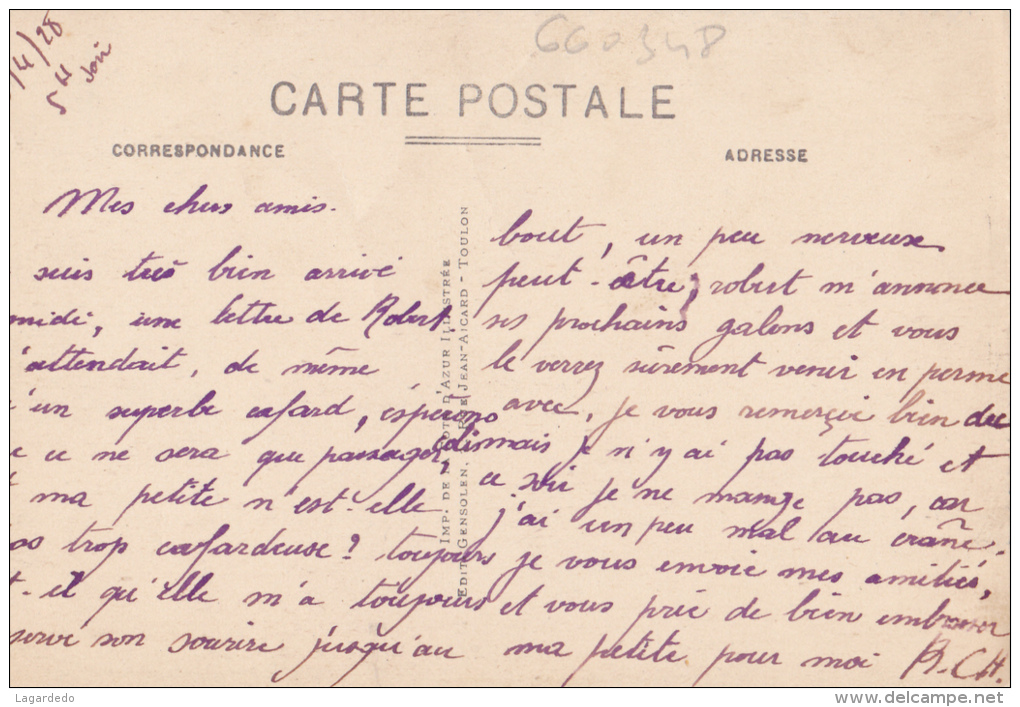 /4/28
5 H soir
660348
CARTE POSTALE
CORRESPONDANCE
ADRESSE
Mes chers amis.
suis très bien arrivé
midi, une lettre de Robert
'attendait, de même
'un superbe cafard, espérons
ce ne sera que passager,
ma petite n'est-elle
trop cafardeuse? toujours
il qu'elle m'a toujours
serve son sourire jusqu'au
IMP. DE LA COTE D'AZUR ILLUSTRÉE
EDIT. GENSOLEN, RUE JEAN-AICARD - TOULON
bout, un peu nerveux
peut-être, robert m'annonce
ses prochains galons et vous
le verrez sûrement venir en perme
avec, je vous remerçie bien du
mais je n'y ai pas touché et
ce soir je ne mange pas, car
j'ai un peu mal au crâne.
je vous envoie mes amitiés,
et vous prie de bien embrasser
ma petite pour moi R.CH.
Lagardedo
www.delcampe.net